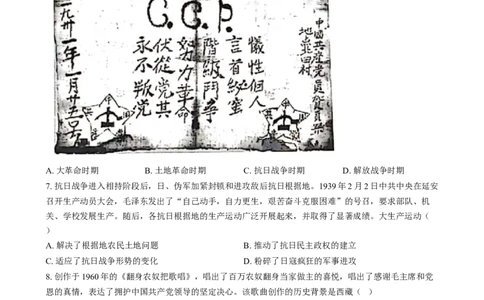 C.C.P.
犧牲個人
言首秘蜜
階級鬥爭
努力革命
伏從党其
永不叛党
A. 大革命时期 B. 土地革命时期 C. 抗日战争时期 D. 解放战争时期
7. 抗日战争进入相持阶段后，日、伪军加紧封锁和进攻敌后抗日根据地。1939 年 2 月 2 日中共中央在延安
召开生产动员大会，毛泽东发出了“自己动手，自力更生，艰苦奋斗克服困难”的号召，要求部队、机
关、学校发展生产。随后，各抗日根据地的生产运动广泛开展起来，并取得了显著成绩。大生产运动（
）
A. 解决了根据地农民土地问题 B. 推动了抗日民主政权的建立
C. 适应了抗日战争形势的变化 D. 粉碎了日寇疯狂的军事进攻
8. 创作于 1960 年的《翻身农奴把歌唱》，唱出了百万农奴翻身当家做主的喜悦，唱出了感谢毛主席和党
恩的真情，表达了拥护中国共产党领导的坚定决心。该歌曲创作的历史背景是西藏（ ）